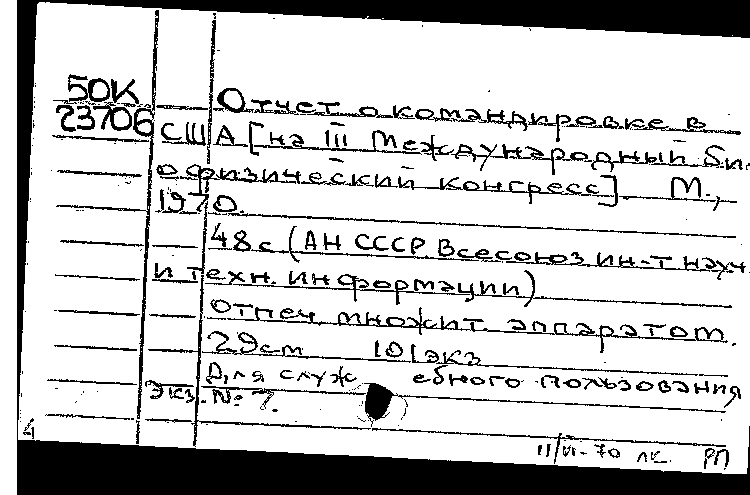 50К
23706
Отчет о командировке в
США [на III Международный би-
офизический конгресс]. М.,
1970.
48с (АН СССР. Всесоюз. ин-т науч.
и техн. информации)
Отпеч. множит. аппаратом.
29см 101экз
Для служ ебного пользования
Экз. № 7.
4
11/VI-70 лк. РП